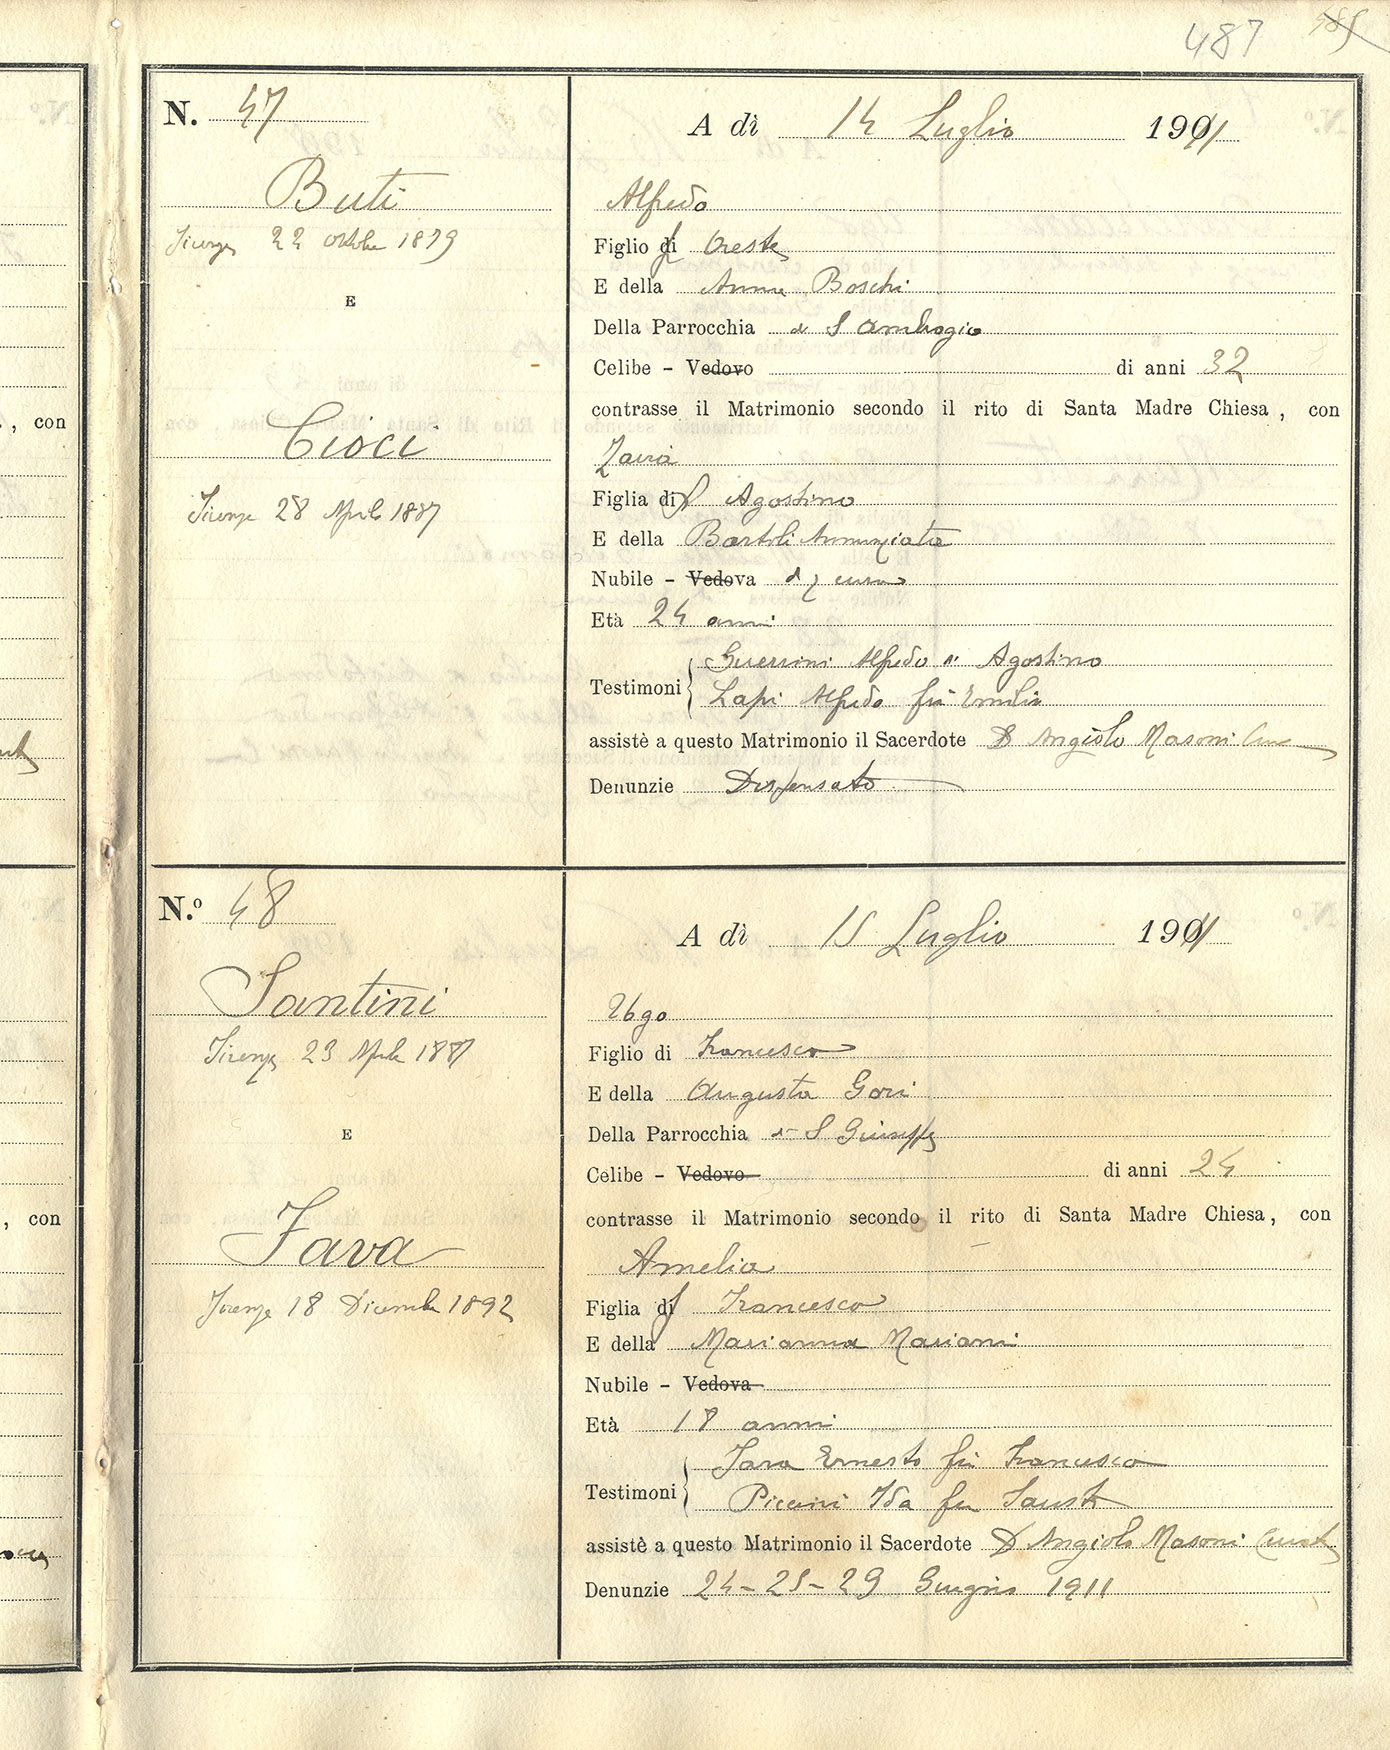 487
N. 47
Buti
Firenze 22 ottobre 1879
E
Cioci
Firenze 28 Aprile 1887
A dì 14 Luglio 1911
Alfredo
Figlio di Oreste
E della Anna Boschi
Della Parrocchia di S Ambrogio
Celibe - Vedovo di anni 32
contrasse il Matrimonio secondo il rito di Santa Madre Chiesa, con
Zaira
Figlia di Agostino
E della Bartoli Annunziata
Nubile - Vedova di cura
Età 24 anni
Testimoni { Guerrini Alfredo di Agostino
Lapi Alfredo fu Emilio
assistè a questo Matrimonio il Sacerdote D Angiolo Masoni
Denunzie Dispensato
N.º 48
Santini
Firenze 23 Aprile 1887
E
Fava
Firenze 18 Dicembre 1892
A dì 15 Luglio 1911
Ugo
Figlio di Francesco
E della Augusta Gori
Della Parrocchia di S Giuseppe
Celibe - Vedovo di anni 24
contrasse il Matrimonio secondo il rito di Santa Madre Chiesa, con
Amelia
Figlia di Francesco
E della Marianna Mariani
Nubile - Vedova
Età 18 anni
Testimoni { Fava Ernesto fu Francesco
Piccini Ida fu Fausto
assistè a questo Matrimonio il Sacerdote D Angiolo Masoni Curato
Denunzie 24-25-29 Giugno 1911
, con
, con